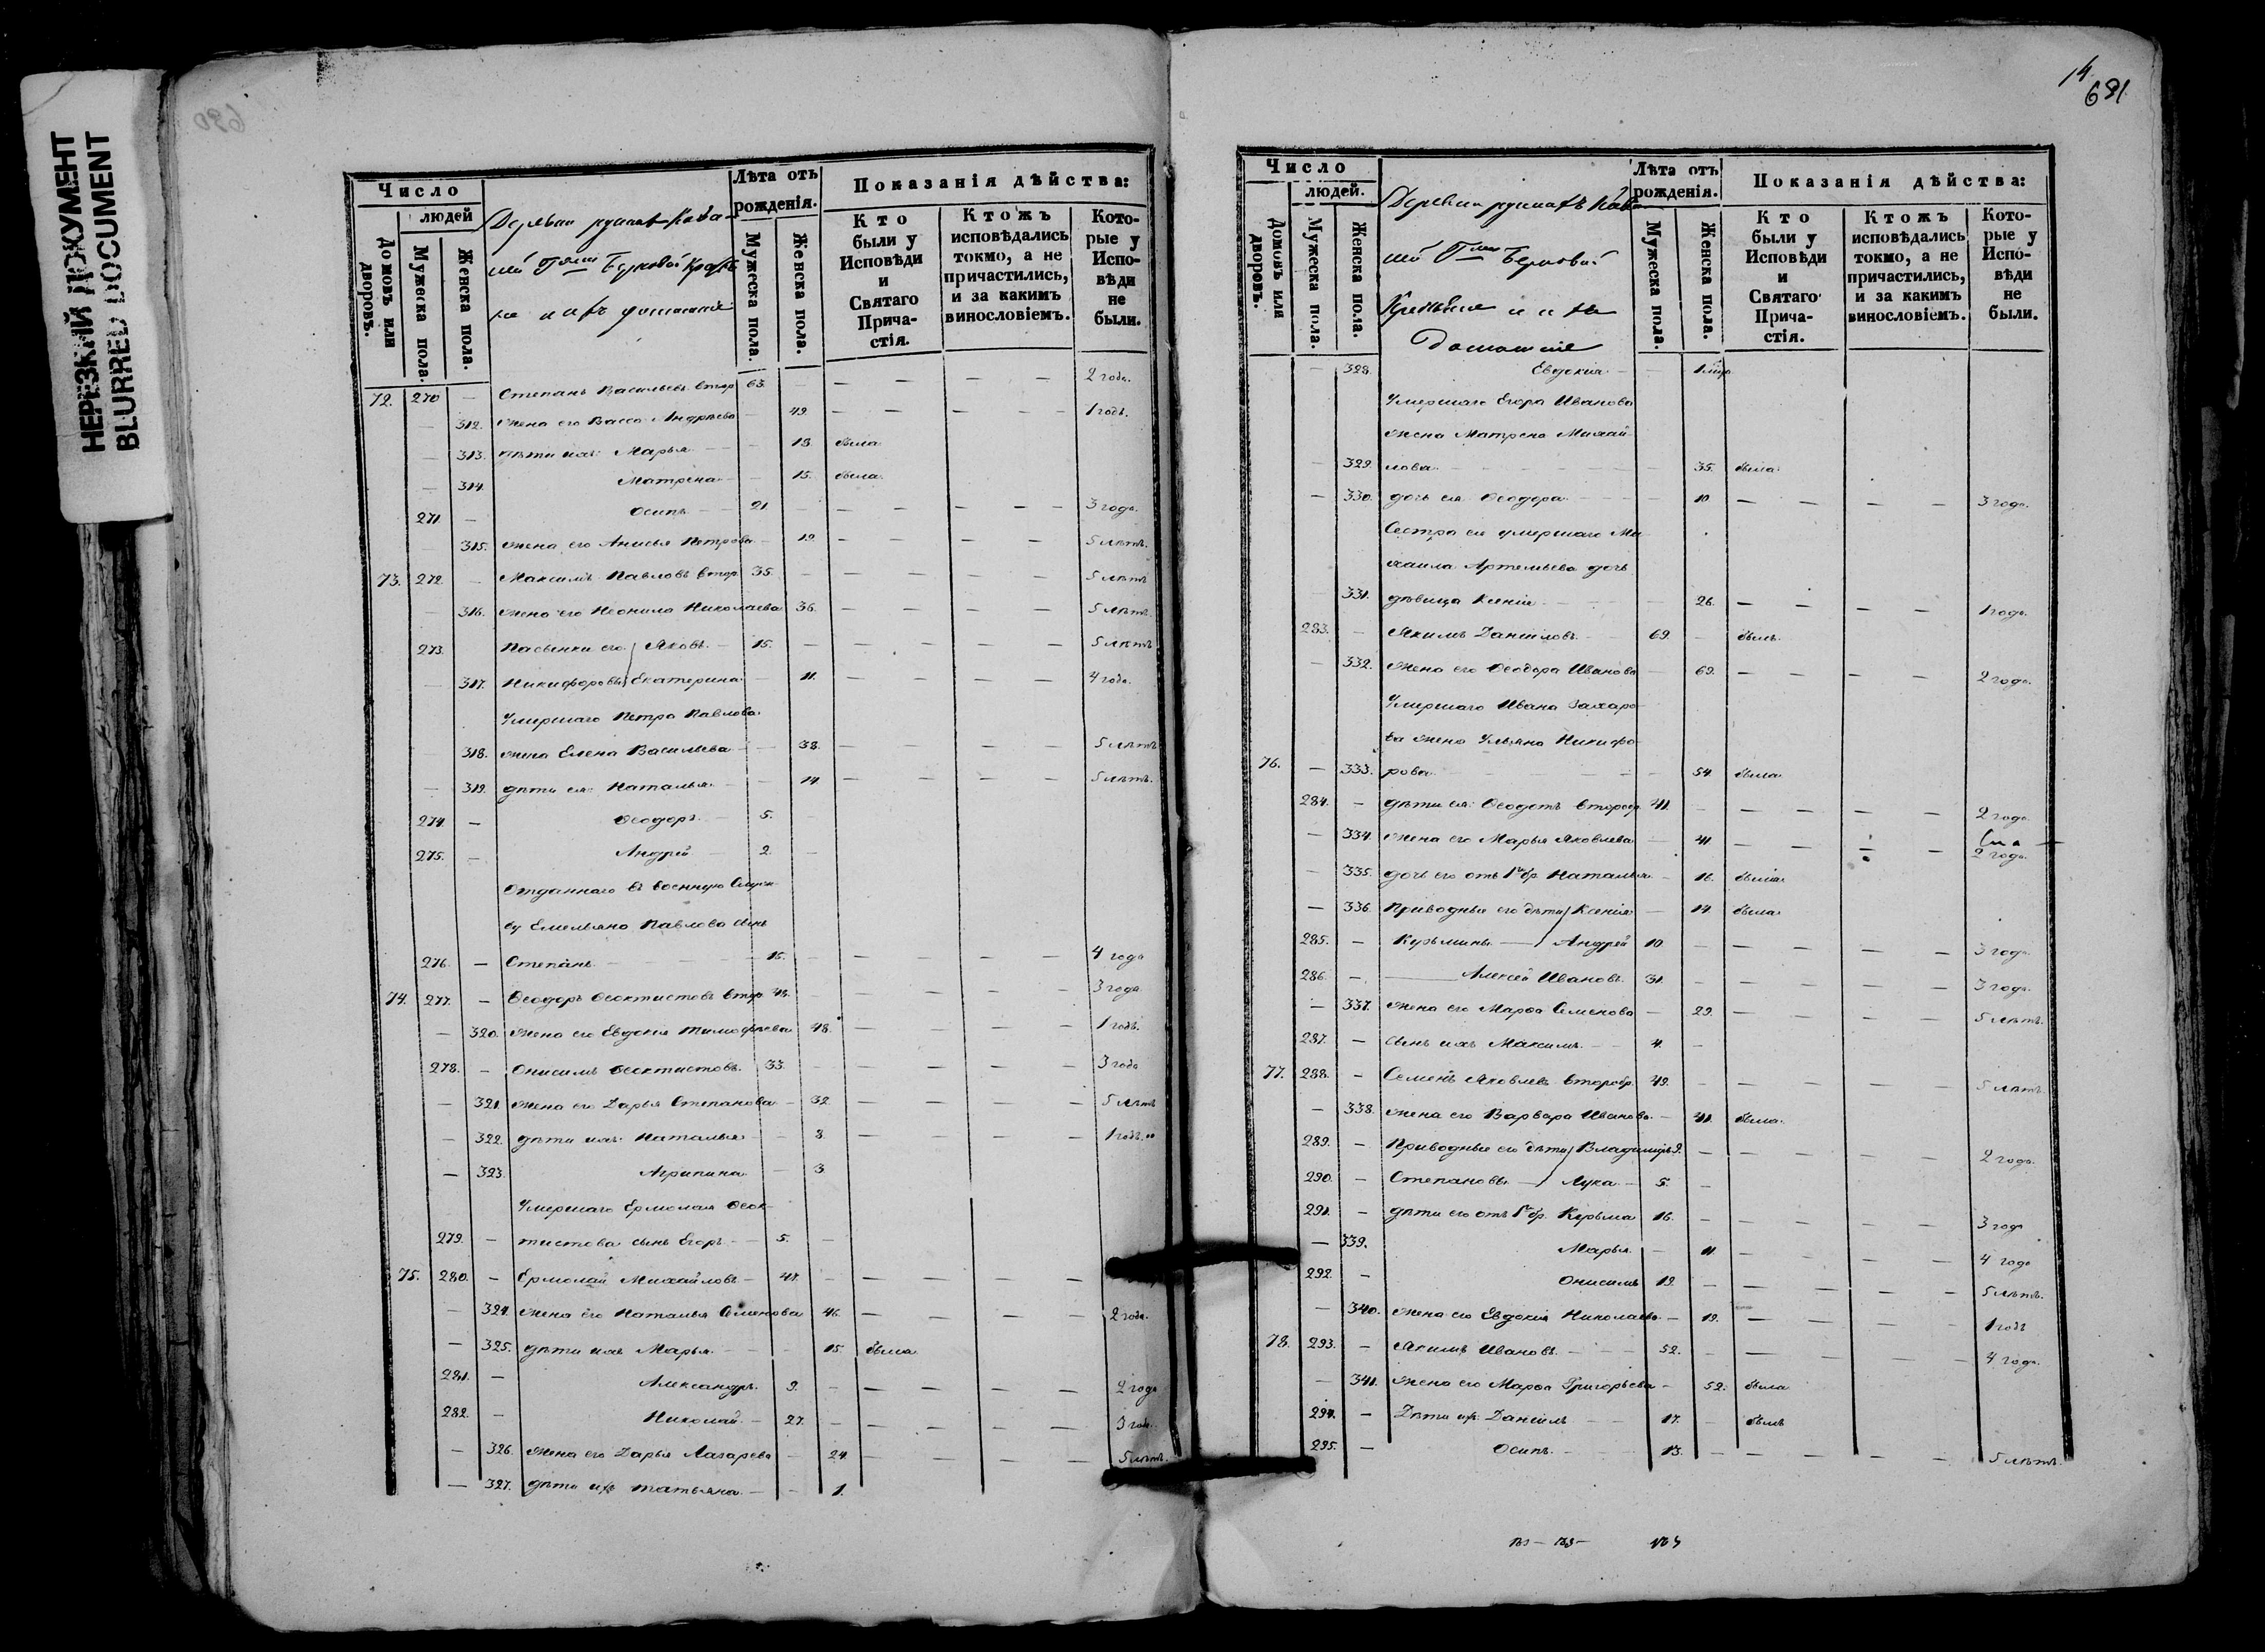 НЕРЕЗКИЙ ДОКУМЕНТ
BLURRED DOCUMENT
Число
людей
Домовъ или дворовъ.
Мужеска пола.
Женска пола.
Лѣта отъ рожденія.
Мужеска пола.
Женска пола.
Показанія дѣйства:
Кто были у Исповѣди и Святаго Причастія.
Ктожъ исповѣдались токмо, а не причастились, и за какимъ винословіемъ.
Которые у Исповѣди не были.
72. 270 — Степанъ Васильевъ втор 63. — — — — — 2 года.
— 312. жена его Васса Андрѣева — 49. — — — — 1 годъ.
— 313. дѣти ихъ: Марья — — 18. была
— 314. Матрена — — 15. была
271. — Осипъ — 21. — — — — — 3 года.
315. жена его Анисья Петрова — 19. — — — — 5 лѣтъ.
73. 272. — Максимъ Павловъ втор. 35. — — — — — 5 лѣтъ
— 316. жена его Неонила Николаева 36. — — — — 5 лѣтъ.
273. Пасынки его Яковъ. — 15. — — — — — 5 лѣтъ
— 317. Никифоровы Екатерина — 11. — — — — 4 года.
Умершаго Петра Павлова
318. жена Елена Васильева — — 38. — — — 5 лѣтъ
— 319. дѣти ея: Наталья — — 14 — — — — 5 лѣтъ.
274. — Ѳеодоръ. — 5.
275. — Андрей — 2. —
Отданнаго въ военную Служ-
бу Емельяна Павлова сынъ
276. — Степанъ — — — — 15. — — — — — 4 года
74. 277. — Ѳеодоръ Ѳеоктистовъ втор — — — 3 года
— 320. жена его Евдокія Тимофѣева 48. — — — — 1 годъ.
278. — Онисимъ Ѳеоктистовъ. 33. — — — — — 3 года
— 321. жена его Дарья Степанова — 32. — — — — 5 лѣтъ
— 322. дѣти ихъ: Наталья — — 8. — — — — 1 годъ.
— 323. Агрипина — 3
Умершаго Ермолая Ѳеок-
279. — тистова сынъ Егоръ — 5. —
75. 280. — Ермолай Михайловъ — — — — — —
— 324. жена его Наталья Семенова 46. — — — — 2 года.
— 325. дѣти ихъ Марья. — — — 15. была
281. — Александръ. 9. — — — — — 2 года
282. — Николай. — 27. — — — — — 3 года.
— 326. жена его Дарья Лазарева — 24. — — — — 5 лѣтъ.
— 327. дѣти ихъ Татьяна. — — 1.
14
691
Число
людей.
Домовъ или дворовъ.
Мужеска пола.
Женска пола.
Домашніе
Лѣта отъ рожденія.
Мужеска пола.
Женска пола.
Показанія дѣйства:
Кто были у Исповѣди и Святаго Причастія.
Ктожъ исповѣдались токмо, а не причастились, и за какимъ винословіемъ.
Которые у Исповѣди не были.
— 328. Евдокія — —
Умершаго Егора Иванова
жена Матрена Михай-
— 329. лова — — — — 35. была
— 330. дочь ея Ѳеодора — — — 10 — — — — 3 года.
Сестра ея умершаго Ми-
хаила Артемьева дочь
331. дѣвица Ксенія — — — 26. — — — — 1 годъ.
283. — Якимъ Даніиловъ — 69. — былъ.
— 332. жена его Ѳеодора Иванова — 69. — — — — 2 года.
Умершаго Ивана Захаро-
ва жена Ульяна Никифо-
76. — 333. рова — — — 54. была
284. — дѣти ея: Ѳеодотъ 41. — — — — — 2 года
— 334. жена его Марья Яковлева — 41. — — — — 2 года.
— 335. дочь его отъ 1го бр. Наталья — 16. была
— 336. Приводные его дѣти Ксенія — 14. была
285. — Кузьмины — Андрей 10 — — — — — 3 года.
286. — Алексѣй Ивановъ. 31. — — — — — 3 года.
— 337. жена его Марѳа Семенова — 29. — — — — 5 лѣтъ.
287. — сынъ ихъ Максимъ — — 4. —
77. 288. — Семенъ Яковлевъ второбр. 49. — — — — — 5 лѣтъ.
— 338. жена его Варвара Иванова — 41. была.
289. — Приводные его дѣти Владиміръ 9. — — — — — 2 года.
290. — Степановы — Лука — 5. —
291. — дѣти его отъ 1го бр. Кузьма 16. — — — — — 3 года
— 339. Марья — 11. — — — — 4 года
292. — Онисимъ 19. — — — — — 5 лѣтъ.
— 340. жена его Евдокія Николаева — 19. — — — — 1 годъ
78. 293. — Якимъ Ивановъ. — — 52. — — — — — 4 года.
— 341. жена его Марѳа Григорьева — 52. была
294. — Дѣти ихъ Даніилъ — — 17. — былъ
295. — Осипъ. — — 13. — — — — — 5 лѣтъ.